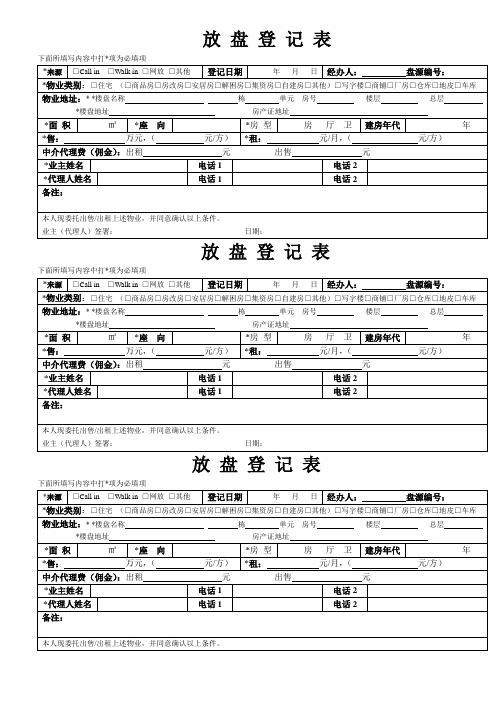 放 盘 登 记 表
下面所填写内容中打*项为必填项
*来源 □Call in □Walk in □网放 □其他 登记日期 年 月 日 经办人: 盘源编号:
*物业类别: □住宅 (□商品房□房改房□安居房□解困房□集资房□自建房□其他)□写字楼□商铺□厂房□仓库□地皮□车库
物业地址: * *楼盘名称 栋 单元 房号 楼层 总层
*楼盘地址 房产证地址
*面 积 ㎡ *座 向 *房 型 房 厅 卫 建房年代 年
*售: 万元,( 元/方) *租: 元/月,( 元/方)
中介代理费(佣金): 出租 元 出售 元
*业主姓名 电话 1 电话 2
*代理人姓名 电话 1 电话 2
备注:
本人现委托出售/出租上述物业,并同意确认以上条件。
业主(代理人)签署: 日期:
放 盘 登 记 表
下面所填写内容中打*项为必填项
*来源 □Call in □Walk in □网放 □其他 登记日期 年 月 日 经办人: 盘源编号:
*物业类别: □住宅 (□商品房□房改房□安居房□解困房□集资房□自建房□其他)□写字楼□商铺□厂房□仓库□地皮□车库
物业地址: * *楼盘名称 栋 单元 房号 楼层 总层
*楼盘地址 房产证地址
*面 积 ㎡ *座 向 *房 型 房 厅 卫 建房年代 年
*售: 万元,( 元/方) *租: 元/月,( 元/方)
中介代理费(佣金): 出租 元 出售 元
*业主姓名 电话 1 电话 2
*代理人姓名 电话 1 电话 2
备注:
本人现委托出售/出租上述物业,并同意确认以上条件。
业主(代理人)签署: 日期:
放 盘 登 记 表
下面所填写内容中打*项为必填项
*来源 □Call in □Walk in □网放 □其他 登记日期 年 月 日 经办人: 盘源编号:
*物业类别: □住宅 (□商品房□房改房□安居房□解困房□集资房□自建房□其他)□写字楼□商铺□厂房□仓库□地皮□车库
物业地址: * *楼盘名称 栋 单元 房号 楼层 总层
*楼盘地址 房产证地址
*面 积 ㎡ *座 向 *房 型 房 厅 卫 建房年代 年
*售: 万元,( 元/方) *租: 元/月,( 元/方)
中介代理费(佣金): 出租 元 出售 元
*业主姓名 电话 1 电话 2
*代理人姓名 电话 1 电话 2
备注:
本人现委托出售/出租上述物业,并同意确认以上条件。